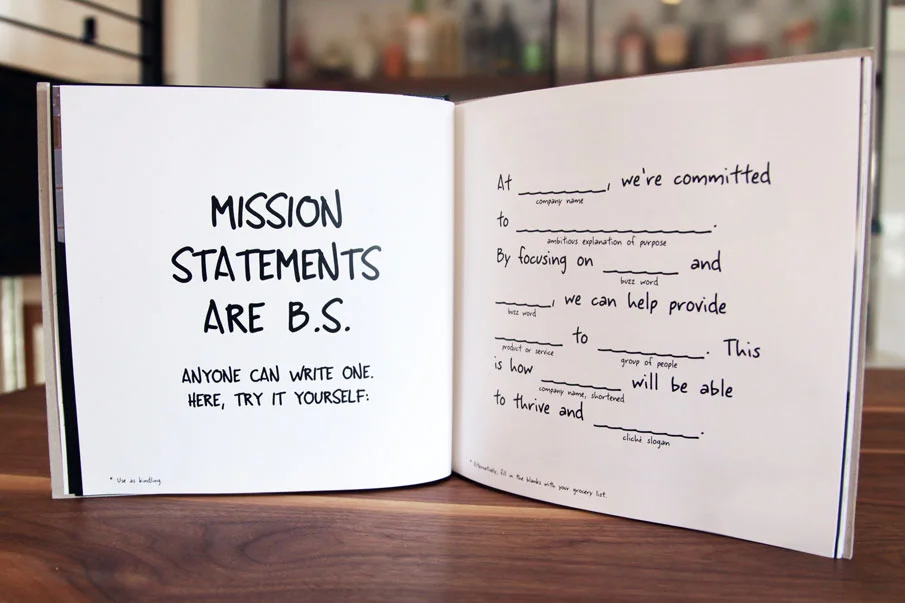 MISSION
STATEMENTS
ARE B.S.
ANYONE CAN WRITE ONE.
HERE, TRY IT YOURSELF:
* Use as kindling.
At ____________, we're committed
company name
to ____________.
ambitious explanation of purpose
By focusing on ____________ and
buzz word
____________, we can help provide
buzz word
____________ to ____________. This
product or service group of people
is how ____________ will be able
company name, shortened
to thrive and ____________.
cliché slogan
* Alternatively, fill in the blanks with your grocery list.